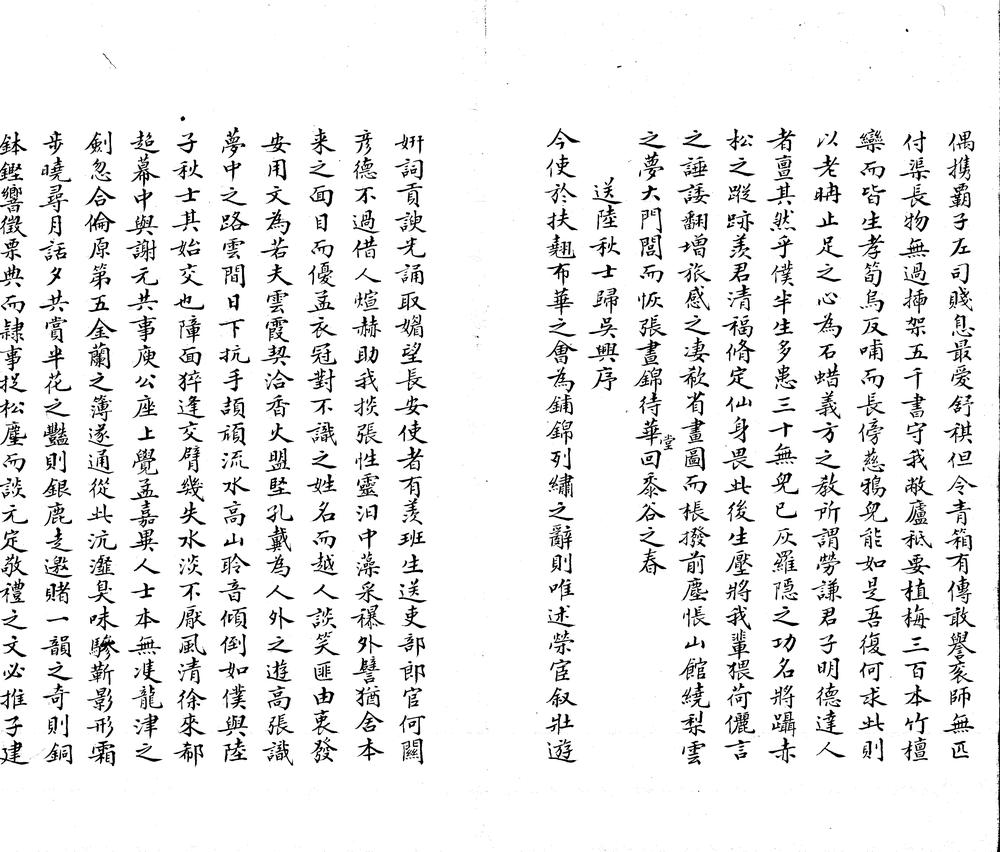 偶携覇子左司賤息最爱舒祺但令青箱有傳敢譽衮師無匹
付渠長物無過揷架五千書守我敝廬秪要植梅三百本竹檀
欒而皆生孝筍烏反哺而長傍慈鴉兒能如是吾復何求此則
以老聃止足之心為石蜡義方之教所謂勞謙君子明德達人
者亶其然乎僕半生多患三十無兒已灰羅隱之功名將躡赤
松之蹤跡羨君清福脩定仙身畏此後生壓將我輩猥荷儷言
之諈諉翻增旅感之凄欷省畫圖而棖撥前塵悵山館繞梨雲
之夢大門閭而恢張晝錦待華堂回黍谷之春
送陸秋士歸吳興序
今使於扶翹布華之會為鋪錦列繡之辭則唯述榮宦叙壯遊
姸詞貢諛先誦取媚望長安使者有羨班生送吏部郎官何關
彦德不過借人煊赫助我掞張性靈汩中藻采襮外譬猶舍本
来之面目而優孟衣冠對不識之姓名而越人談笑匪由衷發
安用文為若夫雲霞契洽香火盟堅孔戴為人外之遊高張識
夢中之路雲間日下抗手頡頏流水高山聆音傾倒如僕與陸
子秋士其始交也障面猝逢交臂幾失水淡不厭風清徐來郗
超幕中與謝元共事庾公座上覺孟嘉異人士本無䨇龍津之
劍忽合倫原第五金蘭之簿遂通從此沆瀣臭味驂靳影形霜
步曉尋月話夕共賞半花之豔則銀鹿走邀賭一韻之奇則銅
鉢鏗響徵栗典而隷事捉松麈而談元定敬禮之文必推子建